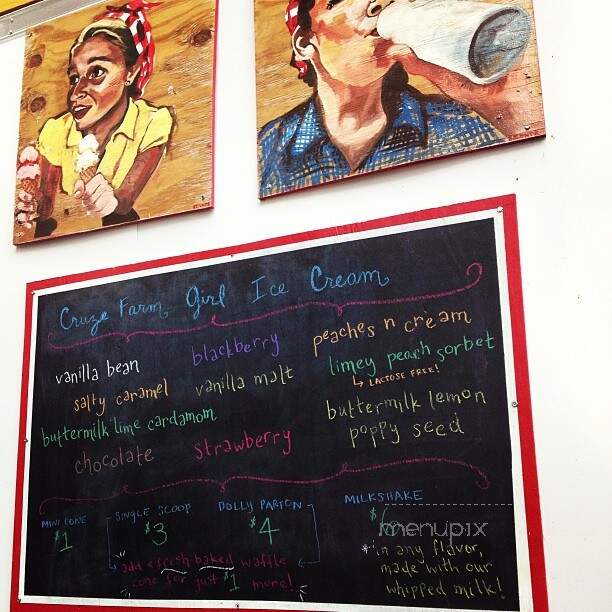 Cruze Farm Girl Ice Cream
vanilla bean
salty caramel
buttermilk lime cardamom
chocolate
blackberry
vanilla malt
strawberry
peaches n cream
limey peach sorbet
↳ LACTOSE FREE!
buttermilk lemon
poppy seed
MINI CONE
$1
SINGLE SCOOP
$3
DOLLY PARTON
$4
add a fresh baked waffle
cone for just $1 more!
MILKSHAKE
$
menupix
*in any flavor,
made with our
whipped milk!